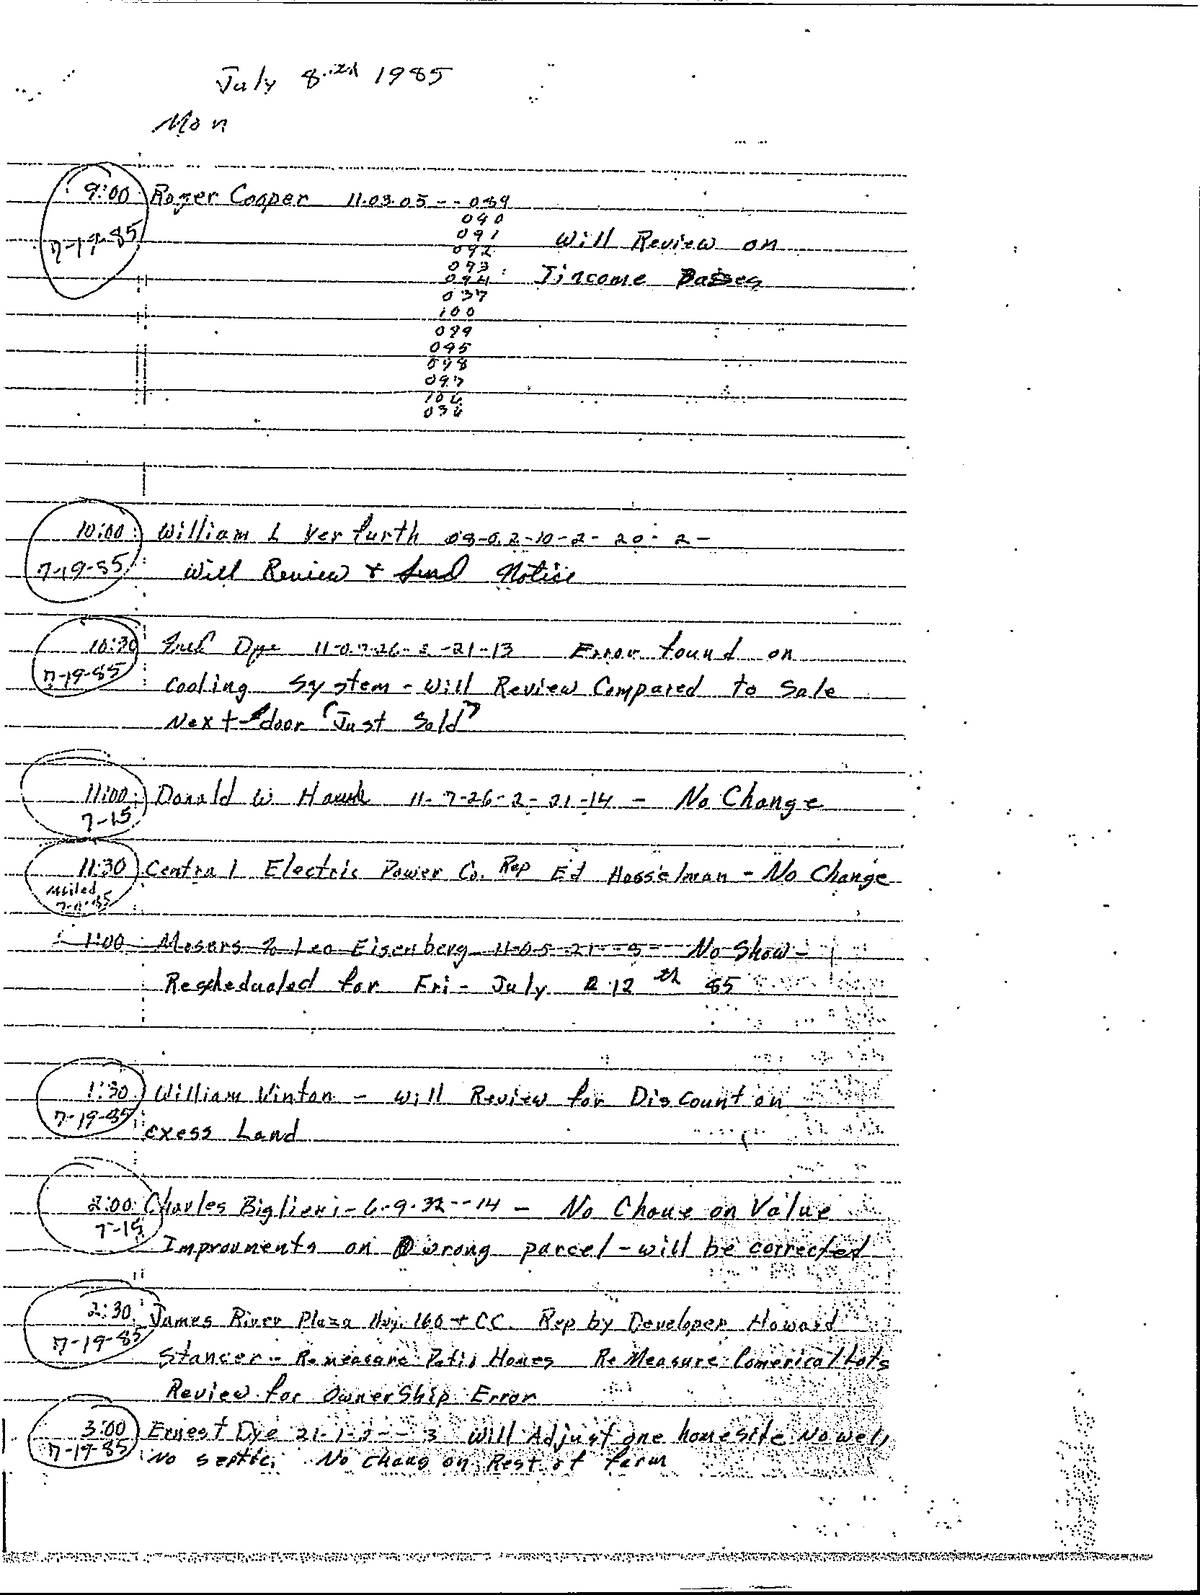 July 8 1985
Mon
9:00 Roger Cooper 11-03-05---089
090
7-19-85 091 Will Review on
092
093
094 Income Basses
037
100
099
095
098
097
106
036
10:00 William L Verfurth 08-0.2-10-2-20-2-
7-19-85 Will Review & Send Notice
10:30 Dye 11-0.7-26-2-21-13 Error found on
7-19-85 Cooling System - Will Review Compared to Sale
Next door "Just Sold"
11:00 Donald W Hawk 11-7-26-2-21-14 - No Change
7-15
11:30 Central Electric Power Co. Rep Ed Hosselman - No Change
Mailed
1:00 Mesars % Leo Eisenberg 11-0.5-21---5- No Show-
Reschedualed for Fri - July 12 th 85
1:30 William Vinton - Will Review for Discount on
7-19-85 exess Land
2:00 Charles Biglieri - 6-9-32--14 - No Chane on Value
7-15 Improvments on wrong parcel - will be corrected
2:30 James River Plaza Hwy. 160 + CC. Rep by Developer Howard
7-19-85 Stancer - Remeasure Patio Homes ReMeasure Comerical Lots
Review for OwnerShip Error
3:00 Ernest Dye 21-1-2---3 Will Adjust one homesite No well
7-19-85 No septic, No chang on Rest of farm